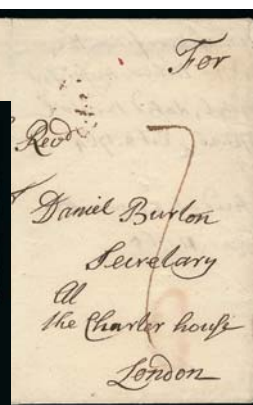 For
Revd
Daniel Burton
Secretary
At
the Charter house
London
7